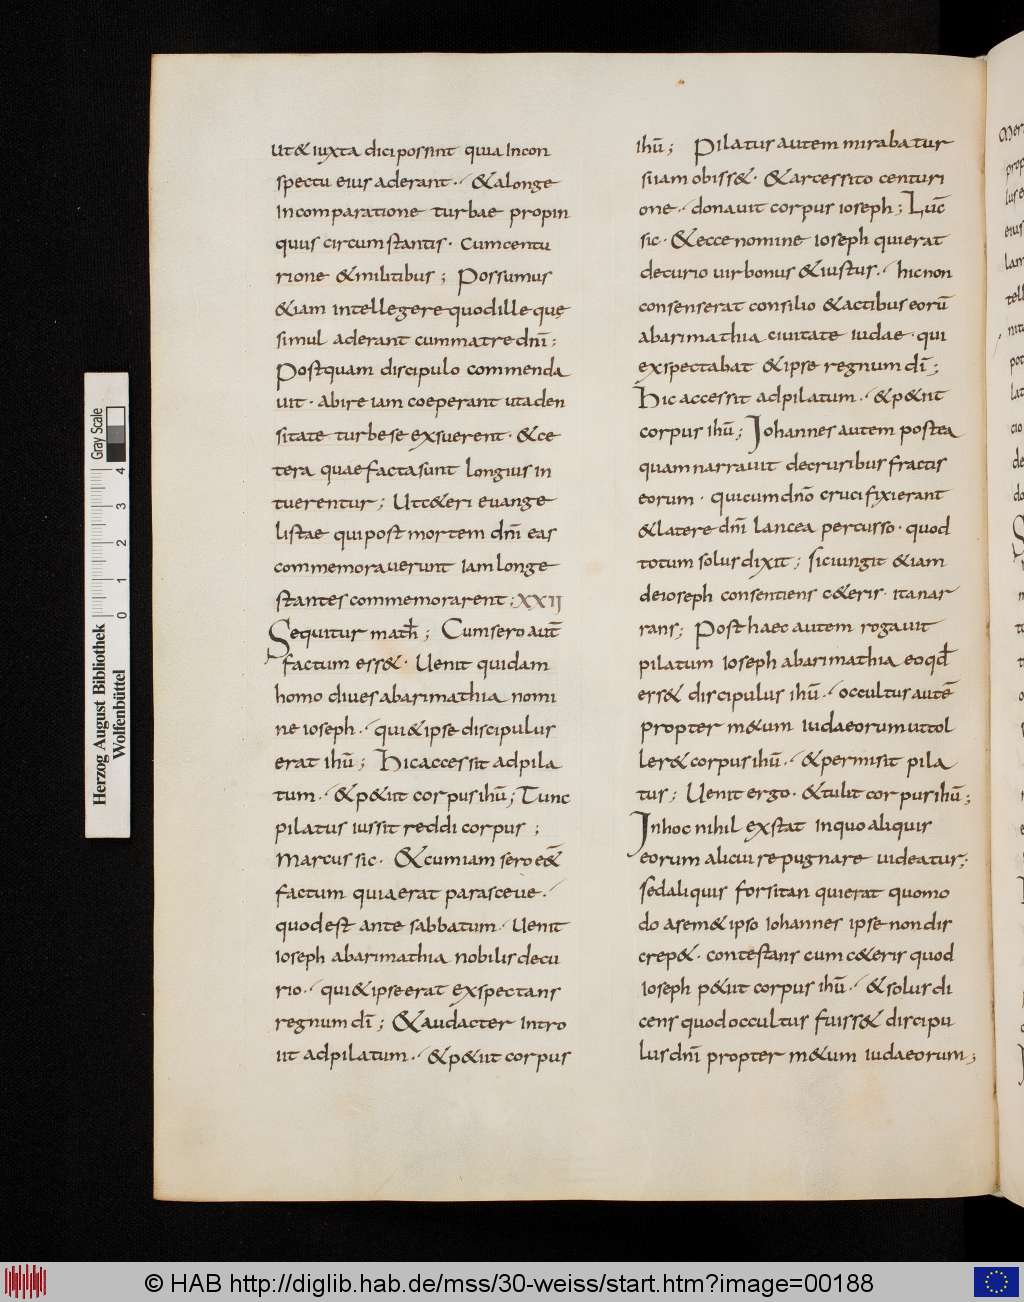 ut & iuxta dici possint quia incon
spectu eius aderant · & alonge
Incomparatione turbae propin
quus circum stantis · cumcentu
rione & militibus ; Possumus
&iam intellegere quodille quę
simul aderant cummatre dnī :
Postquam discipulo commenda
uit · abire iam coeperant utaden
sitate turbese exsuerent · & ce
tera quae facta sunt longius in
tuerentur ; Utc&eri euange
listae qui post mortem dnī eas
commemorauerunt iamlonge
stantes commemorarent : XXII
Sequitur math̄ ; Cumsero aut̄
factum ess& · Uenit quidam
homo diues abarimathia nomi
ne ioseph · qui & ipse discipulus
erat ihū ; Hicaccessit adpila
tum · & p&iit corpus ihū ; Tunc
pilatus iussit reddi corpus ;
Marcus sic · & cumiam sero e&̄
factum quia erat parasceue ·
quodest ante sabbatum · Uenit
ioseph abarimathia nobilis decu
rio · qui & ipse erat exspectans
regnum dī ; & audacter intro
iit adpilatum · & p&iit corpus
ihū ; Pilatus autem mirabatur
siiam obiss& · & arcessito centuri
one · donauit corpus ioseph ; Luc̄
sic · & ecce nomine ioseph quierat
decurio uir bonus & iustus · hic non
consenserat consilio & actibus eorū
abarimathia ciuitate iudae · qui
exspectabat & ipse regnum dī ;
Hic accessit adpilatum · & p&iit
corpus ihū ; Iohannes autem postea
quam narrauit decruribus fractis
eorum · quicum dnō crucifixierant
& latere dnī lancea percusso · quod
totum solus dixit ; siciungit & iam
deioseph consentiens c&eris · ita nar
rans ; Post haec autem rogauit
pilatum ioseph abarimathia eoqđ
ers& discipulus ihū · occultus autē
propter m&um iudaeorum uttol
ler& corpus ihū · & permisit pila
tus ; Uenit ergo · & tulit corpus ihū ;
Inhoc nihil exstat inquo aliquis
eorum alicui repugnare uideatur ;
sedaliquis forsitan quierat quomo
do asem&ipso iohannes ipse non dis
crep& · contestans cum c&eris quod
ioseph p&iit corpus ihū · & solus di
cens quod occultus fuiss& discipu
lus dnī propter m&um iudaeorum ;
Herzog August Bibliothek
Wolfenbüttel
0 1 2 3 4
Gray Scale
© HAB http://diglib.hab.de/mss/30-weiss/start.htm?image=00188